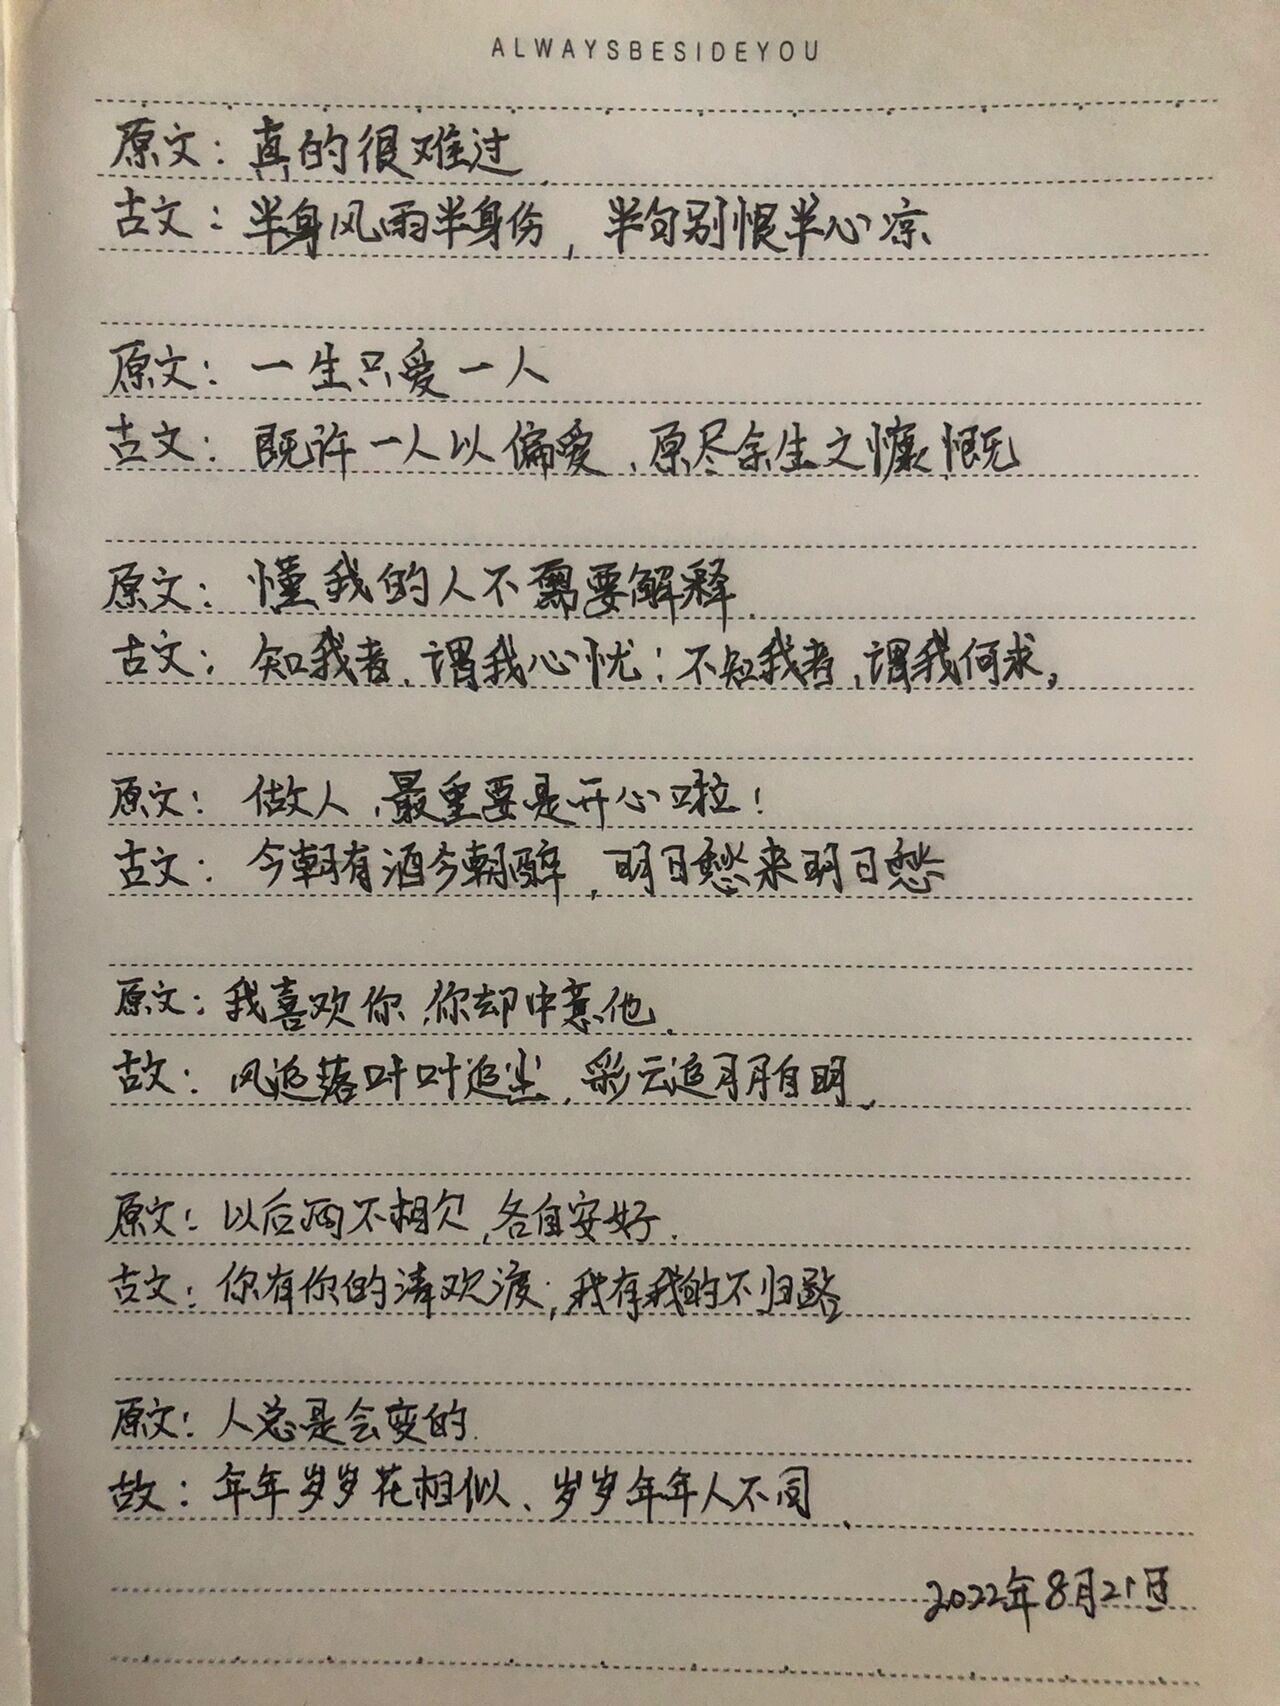 ALWAYSBESIDEYOU
原文：真的很难过.
古文：半身风雨半身伤，半句别恨半心凉
原文：一生只爱一人
古文：既许一人以偏爱，原尽余生之慷慨
原文：懂我的人不需要解释.
古文：知我者，谓我心忧；不知我者，谓我何求，
原文：做人，最重要是开心啦！
古文：今朝有酒今朝醉，明日愁来明日愁
原文：我喜欢你，你却中意他.
古文：风追落叶叶追尘，彩云追月月自明.
原文：以后两不相欠，各自安好.
古文：你有你的清欢渡；我有我的不归路
原文：人总是会变的.
古文：年年岁岁花相似、岁岁年年人不同.
2022年8月21日